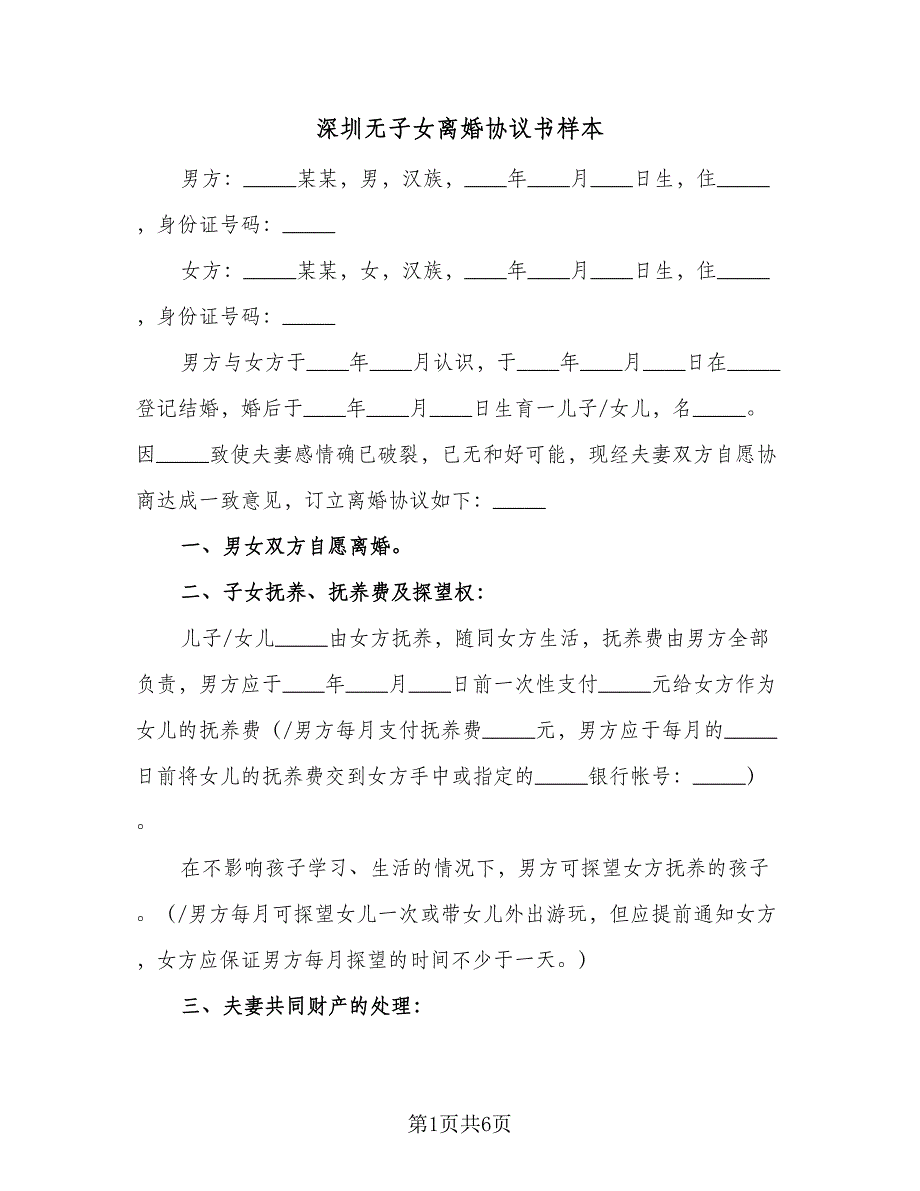 深圳无子女离婚协议书样本
男方：_____某某，男，汉族，____年____月____日生，住_____
，身份证号码：_____
女方：_____某某，女，汉族，____年____月____日生，住_____
，身份证号码：_____
男方与女方于____年____月认识，于____年____月____日在_____
登记结婚，婚后于____年____月____日生育一儿子/女儿，名_____。
因_____致使夫妻感情确已破裂，已无和好可能，现经夫妻双方自愿协
商达成一致意见，订立离婚协议如下：_____
一、男女双方自愿离婚。
二、子女抚养、抚养费及探望权：
儿子/女儿_____由女方抚养，随同女方生活，抚养费由男方全部
负责，男方应于____年____月____日前一次性支付_____元给女方作为
女儿的抚养费（/男方每月支付抚养费_____元，男方应于每月的_____
日前将女儿的抚养费交到女方手中或指定的_____银行帐号：_____）
。
在不影响孩子学习、生活的情况下，男方可探望女方抚养的孩子
。（/男方每月可探望女儿一次或带女儿外出游玩，但应提前通知女方
，女方应保证男方每月探望的时间不少于一天。）
三、夫妻共同财产的处理：
第1页共6页